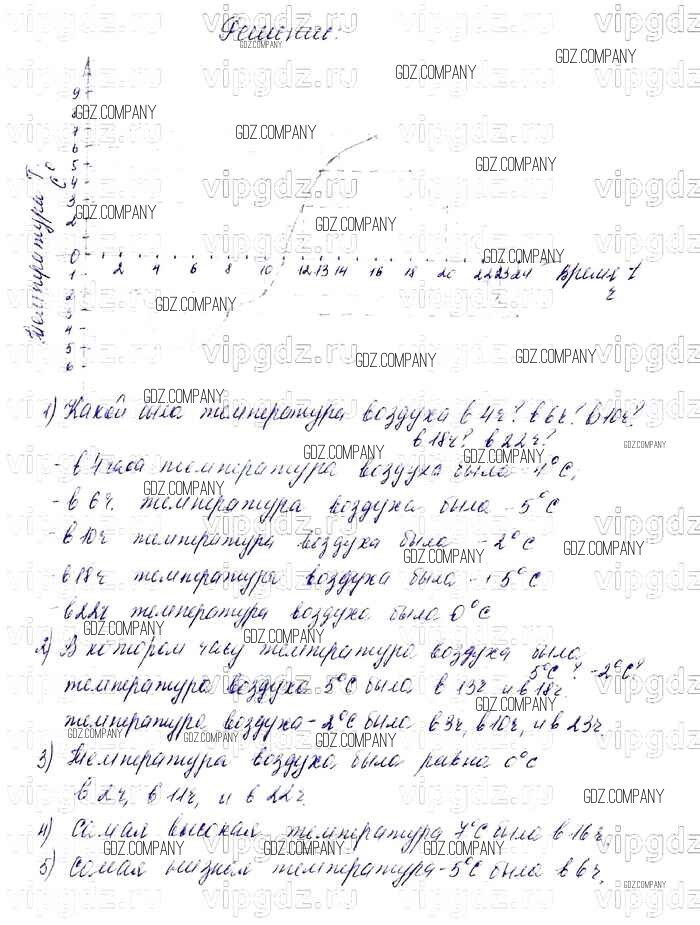 Решение.
9
8
7
6
5
4
3
2
0
1
2
3
4
5
6
Температура Т, С°
2 4 6 8 10 12 13 14 16 18 20 22 23 24 Время t
ч
1) Какой была температура воздуха в 4ч? в 6ч? в 10ч?
в 18ч? в 22ч?
- в 4 часа температура воздуха была -4°С;
- в 6ч. температура воздуха была -5°С
- в 10ч температура воздуха была -2°С
- в 18ч температура воздуха была +5°С
- в 22ч температура воздуха была 0°С
2) В котором часу температура воздуха была
5°С? -2°С?
температура воздуха 5°С была в 13ч и в 18ч.
температура воздуха -2°С была в 3ч, в 10ч, и в 23ч.
3) Температура воздуха была равна 0°С
в 2ч, в 11ч, и в 22ч.
4) Самая высокая температура 7°С была в 16ч.
5) Самая низкая температура -5°С была в 6ч.
GDZ.COMPANY
vipgdz.ru